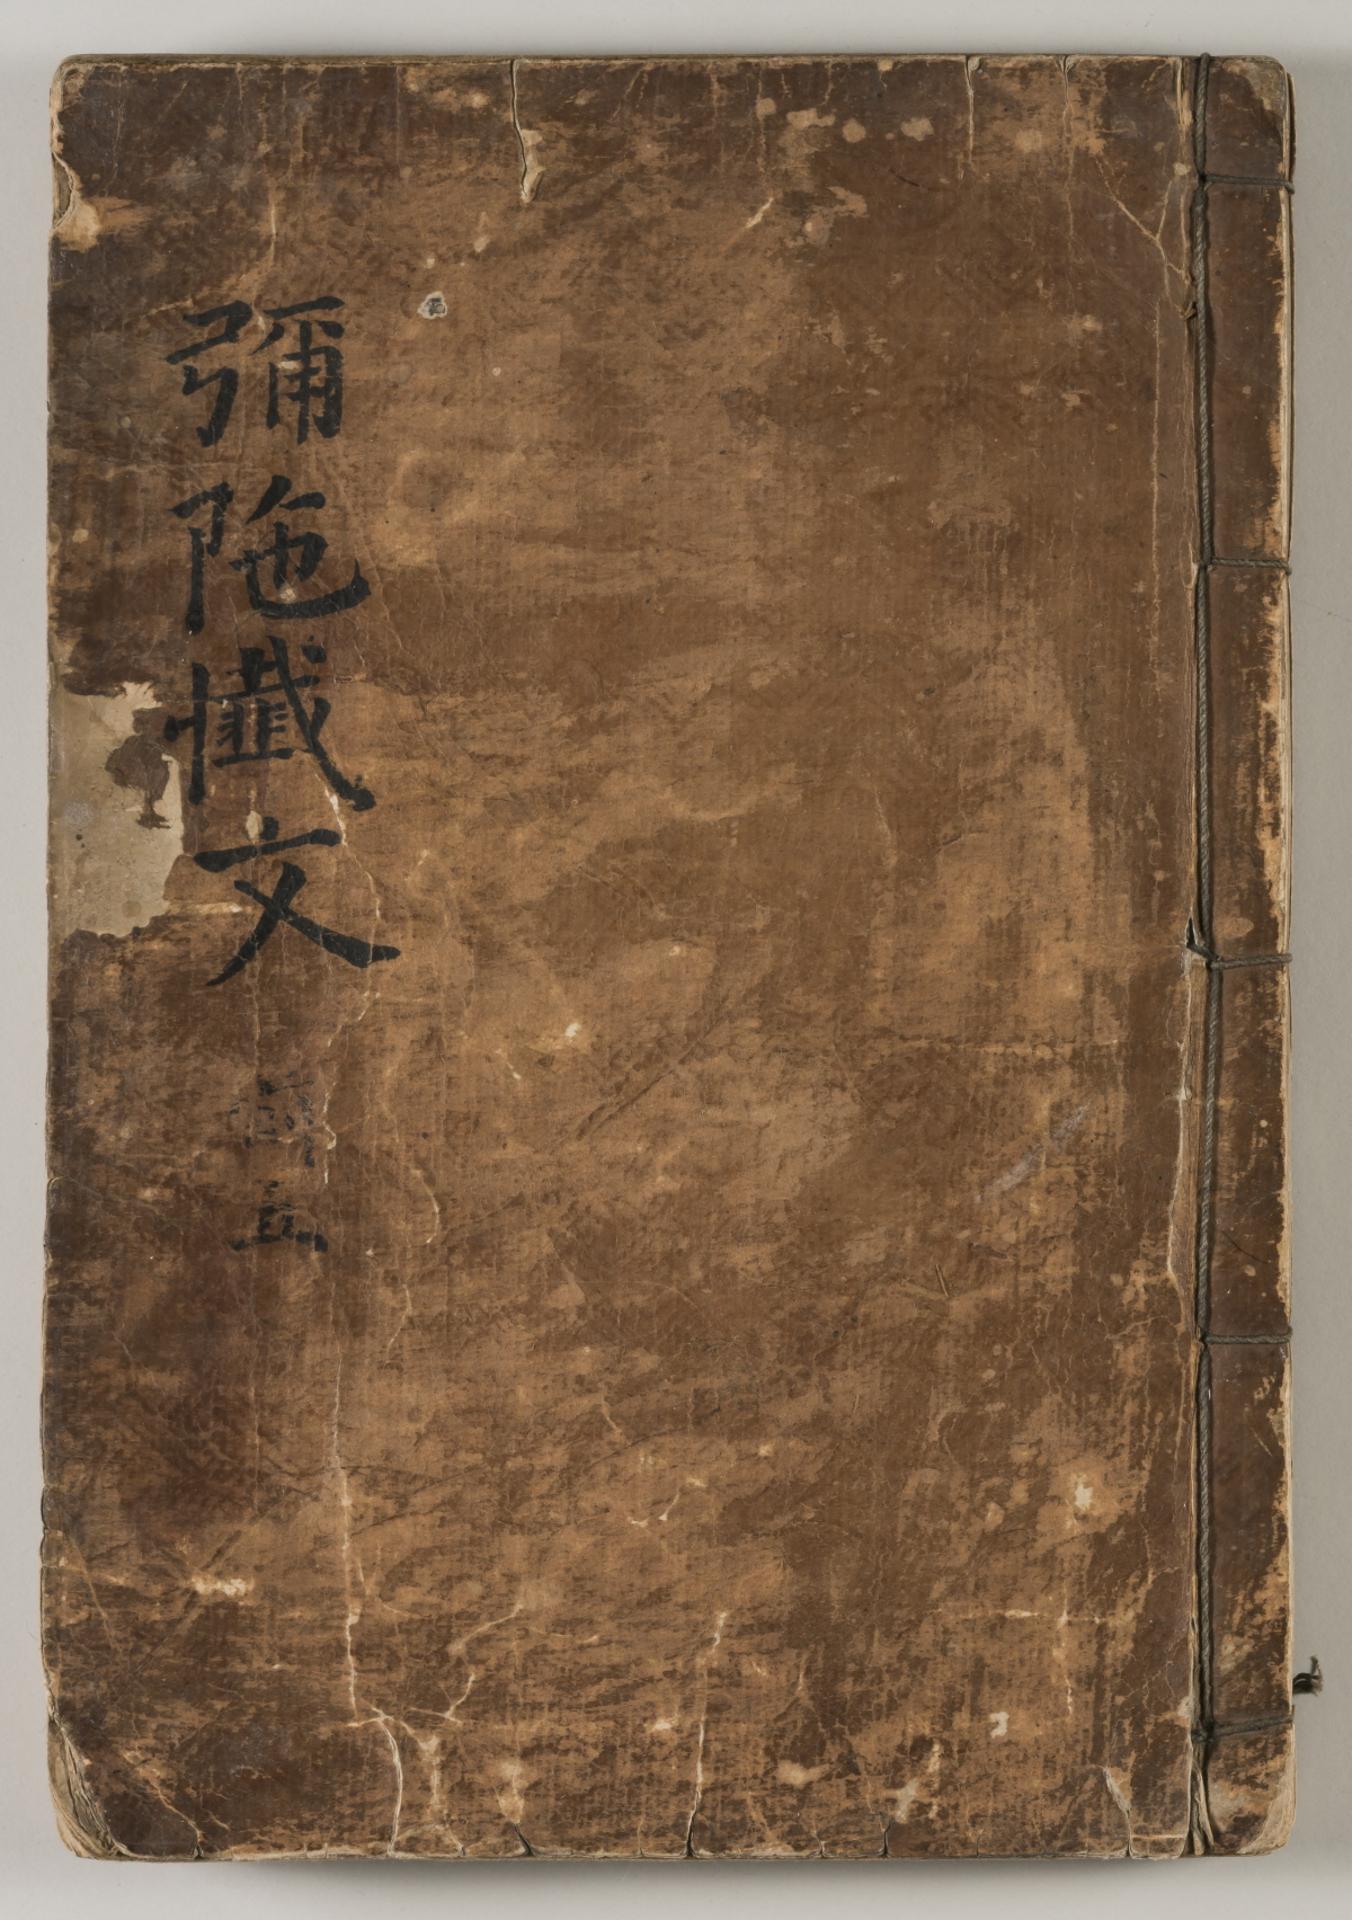 彌陁懺文